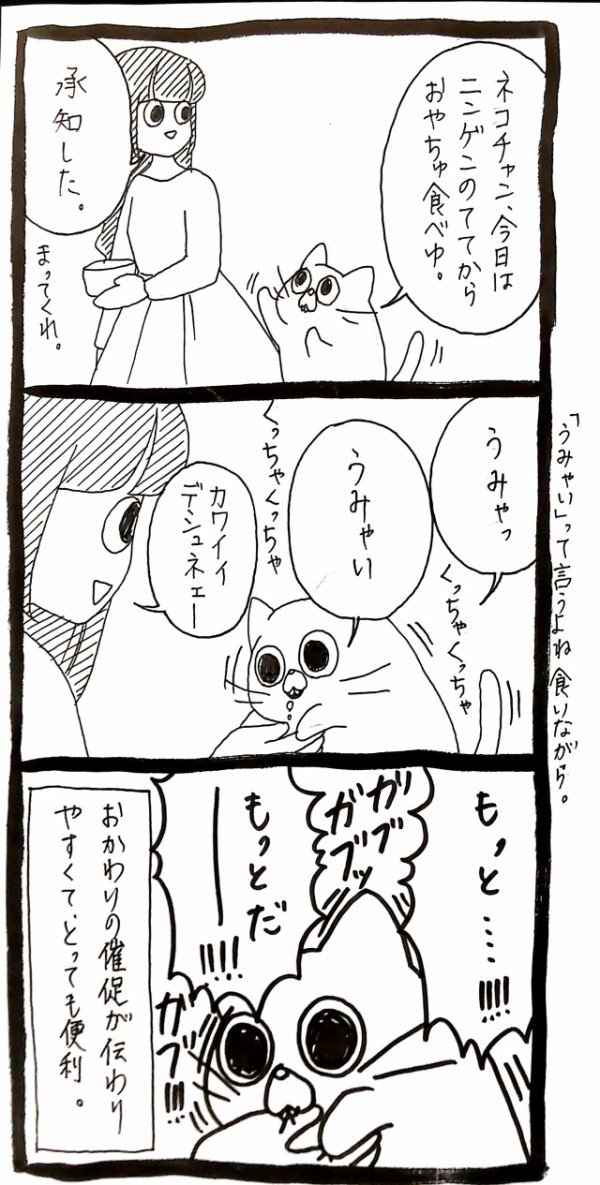 ネコチャン、今日は
ニンゲンのててから
おやちゅ食べゆ。
承知した。
まってくれ。
うみゃっ
くっちゃくっちゃ
うみゃい
くっちゃくっちゃ
カワイイ
デシュネェー
「うみゃい」って言うよね食いながら。
もっと……!!!!
ガブガブッ
もっとだ
――!!!!
ガブ!!!
おかわりの催促が伝わり
やすくて、とっても便利。